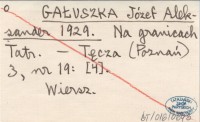 GAŁUSZKA Józef Alek-
sander 1929. Na granicach
Tatr. – Tęcza (Poznań)
3, nr 19: [4].
Wiersz.